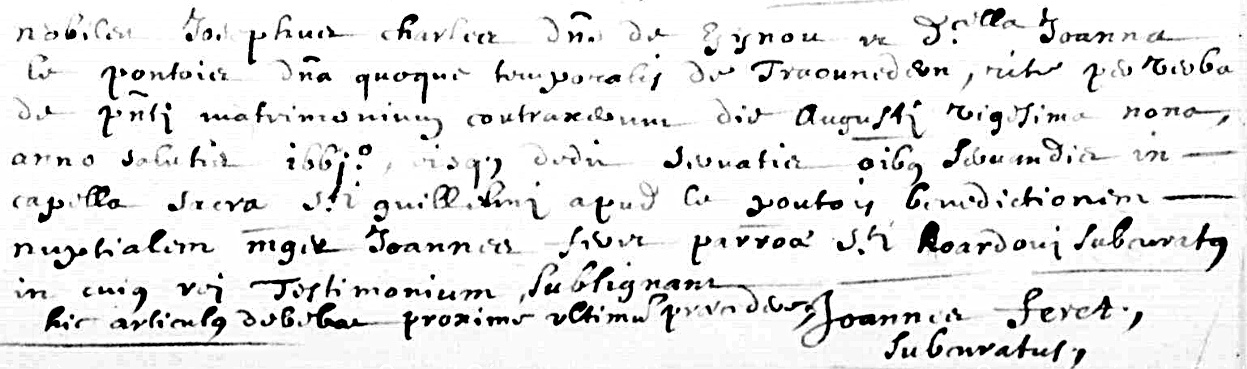 nobiles Josephus charles dñs de Gijnou et d.cella Joanna
le pontois dña quoque temporalis de Traounedern, rite per verba
de pñti matrimonium contraxerunt die Augusti vigesima nona,
anno salutis 1661.°, eisq; dedit servatis oibq servandis in
capella sacra s.ti guillelmi apud le pontoij benedictionem
nuptialem mger Joannes feret parroae s.ti Koardoni subcuratq
in cuiq rej Testimonium subsignant
hic articulq debebat proxime ultimũ præcedere, Joannes feret,
subcuratus,